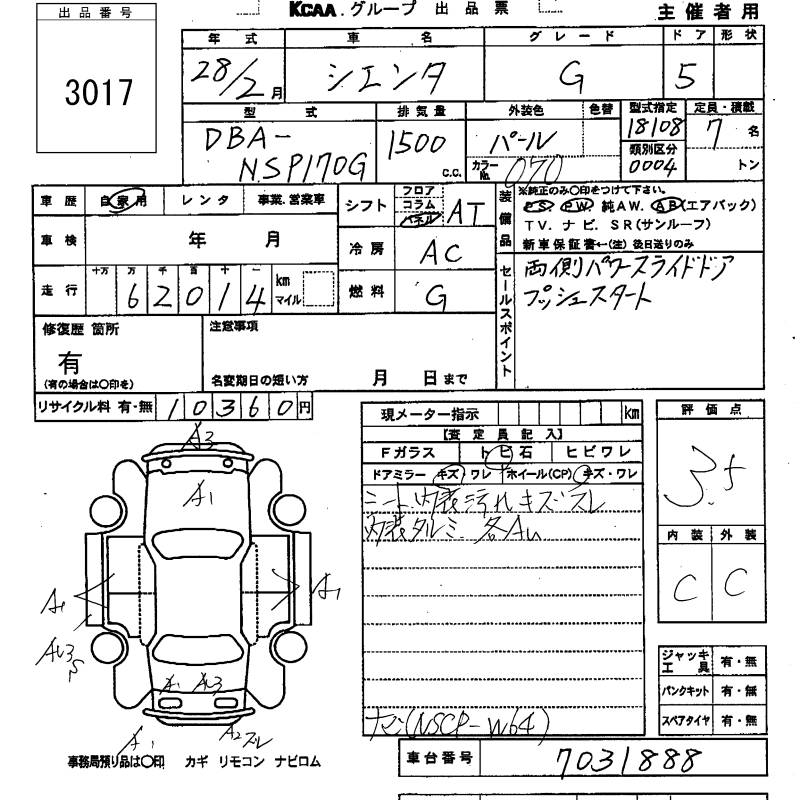 出品番号
3017
KCAA.グループ 出品票
主催者用
年式 車名 グレード ドア 形状
28/2月 シエンタ G 5
型式 排気量 外装色 色替 型式指定 定員・積載
DBA-NSP170G 1500 c.c. パール 18108 7名
カラーNo. 070 類別区分 0004 トン
車歴 自家用 レンタ 事業.営業車
シフト フロア コラム パネル AT
装備品 ※純正のみ○印をつけて下さい。
PS. PW. 純AW. AB(エアバック)
TV. ナビ. SR(サンルーフ)
新車保証書←(注)後日送りのみ
車検 年 月
冷房 AC
走行 十万 万 千 百 十 一
62014 km マイル
燃料 G
セールスポイント
両側パワースライドドア
プッシュスタート
修復歴 箇所
有
(有の場合は○印を)
注意事項
名変期日の短い方 月 日まで
リサイクル料 有・無 10360円
現メーター指示 km
【査定員記入】
Fガラス トビ石 ヒビワレ
ドアミラー キズ ワレ ホイール(CP) キズ・ワレ
シート、内装汚れキズスレ
内装タルミ 各AU
ナビ(NSCP-W64)
評価点
3.5
内装 外装
C C
A3
A1
A1
A1
AU3
S
A1 AU3
A1
A2スレ
ジャッキ工具 有・無
パンクキット 有・無
スペアタイヤ 有・無
事務局預り品は○印 カギ リモコン ナビロム
車台番号 7031888